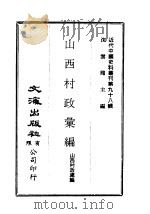 近代中國史料叢刊第九十八輯
沈雲龍主編
山西村政彙編
山西村政處編
文海出版社有限公司印行